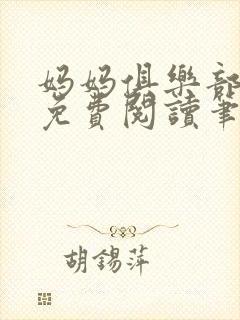 媽媽俱樂部
免費閱讀筆
胡錫萍